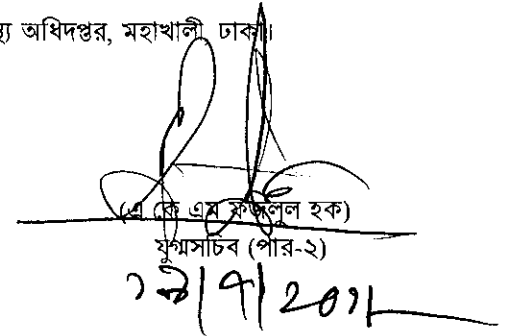 স্থ্য অধিদপ্তর, মহাখালী, ঢাকা।
(এ কে এম ফজলুল হক)
যুগ্মসচিব (পার-২)